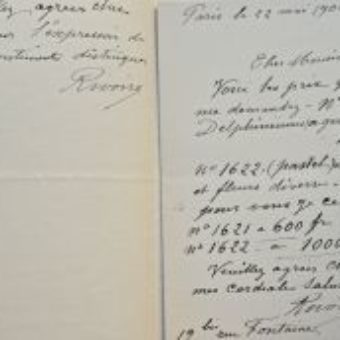 agréer cher
l'expression de
sentiments distingués
Rivoire
Paris le 22 mai 190
Cher Monsieur
Vous les prix q
me demandez - N°
Delphiniums aqu
N° 1622. (pastel)
et fleurs diverse
pour vous ce
n° 1621 a 600 fr
n° 1622 - a 1000
Veuillez agréer c
mes cordiale salu
19 bis rue Fontaine